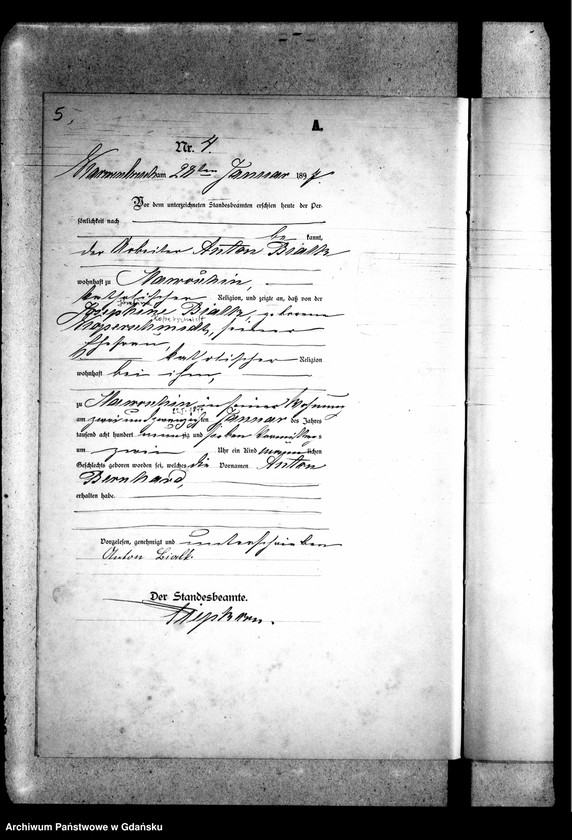 5,
A.
Nr. 4.
am 28ten Januar 1897.
Vor dem unterzeichneten Standesbeamten erschien heute, der Per-
sönlichkeit nach
be kannt,
der Arbeiter Anton Bialk
wohnhaft zu
katholischer Religion, und zeigte an, daß von der
Josephine Bialk, geborene
seiner
Ehefrau,
katholischer Religion
wohnhaft bei ihm,
zu in seiner Wohnung
am zwei und zwanzigsten Januar des Jahres
tausend acht hundert neunzig und sieben Vormittags
um Uhr ein Kind männlichen
Geschlechts geboren worden sei, welches die Vornamen Anton
Bernhard,
erhalten habe.
Vorgelesen, genehmigt und unterschrieben
Anton Bialk.
Der Standesbeamte.
Archiwum Państwowe w Gdańsku